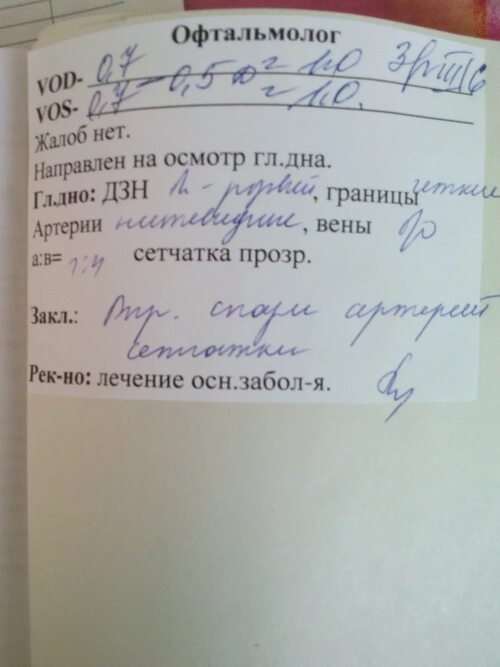 Офтальмолог
VOD- 0,7 - 0,5 = 1,0
VOS- 0,7 = 1,0.
Жалоб нет.
Направлен на осмотр гл.дна.
Гл.дно: ДЗН - розовый, границы четкие
Артерии нитевидные, вены
а:в= сетчатка прозр.
Закл.: спазм артерий
сетчатки
Рек-но: лечение осн.забол-я.